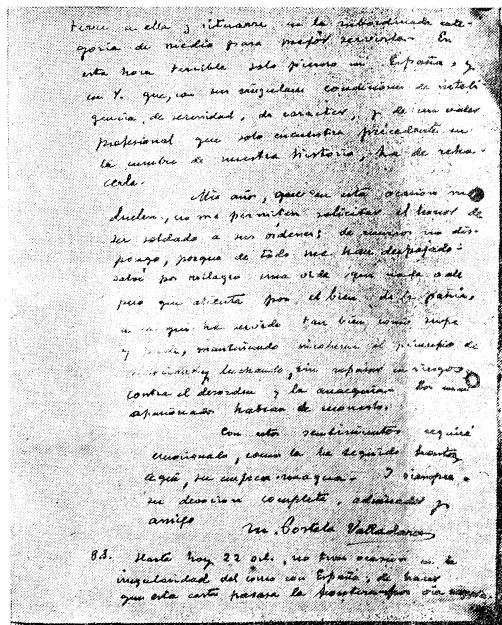 ella y situarse en la subordinada cate-
goría de medio para mejor servirla. En
esta hora terrible solo pienso en España, y
en V. que, con sus singulares condiciones de inteli-
gencia, de serenidad, de carácter, y de un valor
profesional que solo encuentra precedente en
la cumbre de nuestra historia, ha de reha-
cerla.
Mis años, que en esta ocasion me
duelen, no me permiten solicitar el honor de
ser soldado a sus órdenes; de dineros no dis-
pongo, porque de todo me han despojado:
salvé por milagro una vida que nada vale
pero que alienta por el bien de la patria,
a la que he servido tan bien como supe
y pude, manteniendo el principio de
y luchando, sin reparar en riesgos,
contra el desorden y la anarquia.
apasionados habian de
Con estos sentimientos seguiré
emocionado, como la he seguido hasta
aquí, su empresa magna. Y siempre
su devocion completa, admirador y
amigo
M. Portela Valladares
P.S. Hasta hoy 22 oct., no tuve ocasion en la
irregularidad del correo con España, de hacer
que esta carta pasara la frontera por via segura.